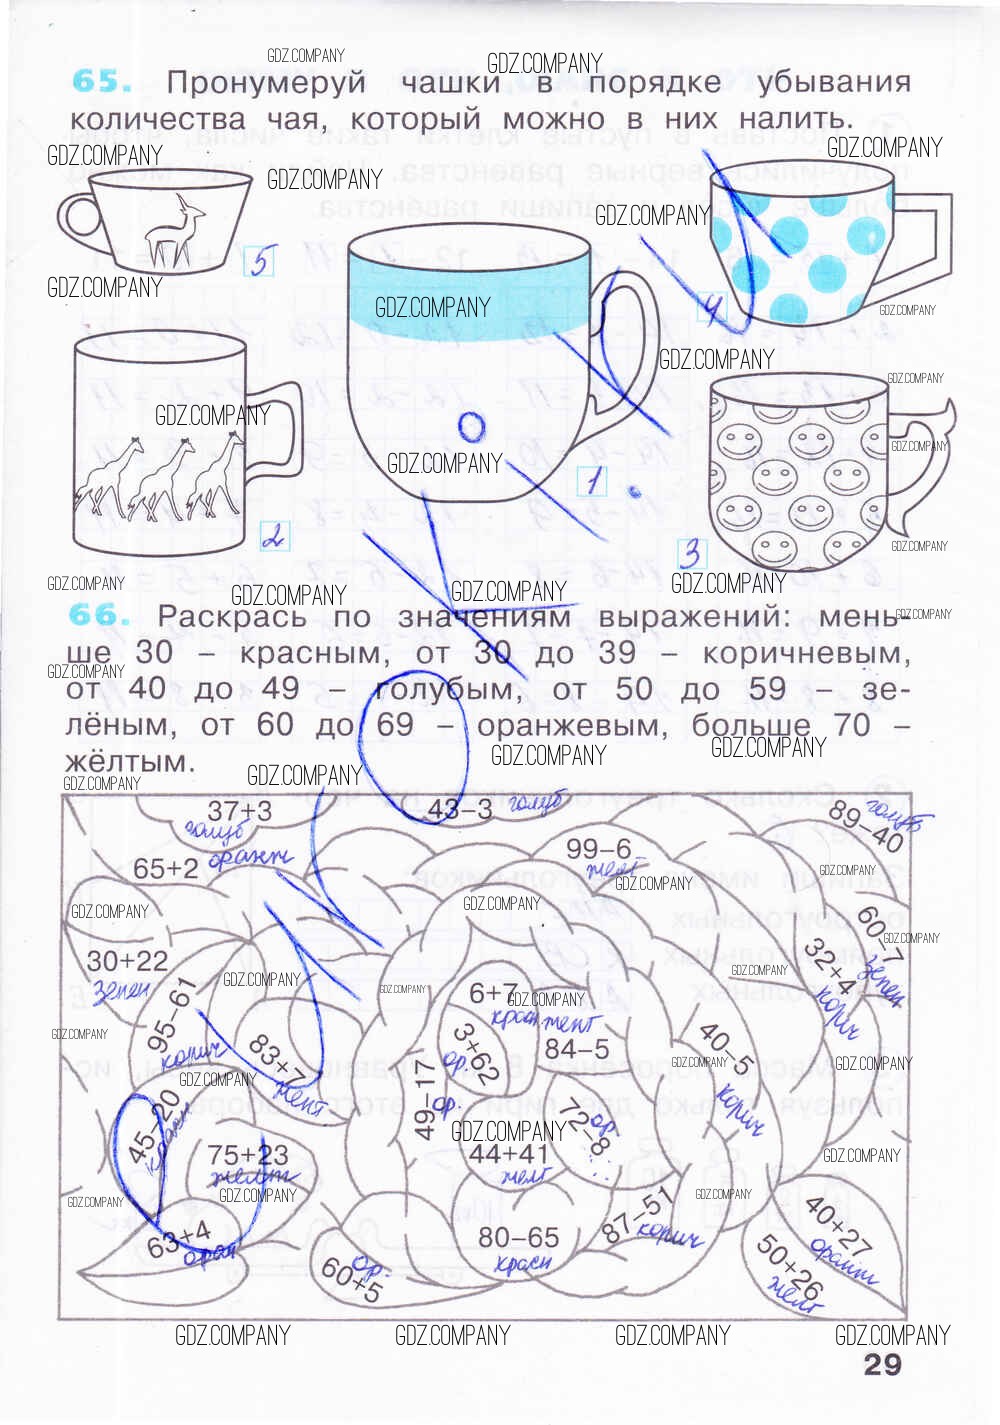 GDZ.COMPANY
GDZ.COMPANY
65. Пронумеруй чашки в порядке убывания
количества чая, который можно в них налить.
GDZ.COMPANY
GDZ.COMPANY
GDZ.COMPANY
GDZ.COMPANY
5
GDZ.COMPANY
GDZ.COMPANY
4
GDZ.COMPANY
GDZ.COMPANY
GDZ.COMPANY
GDZ.COMPANY
GDZ.COMPANY
GDZ.COMPANY
1
2
3
GDZ.COMPANY
GDZ.COMPANY
GDZ.COMPANY
GDZ.COMPANY
GDZ.COMPANY
66. Раскрась по значениям выражений: мень-
GDZ.COMPANY
ше 30 – красным, от 30 до 39 – коричневым,
GDZ.COMPANY
от 40 до 49 – голубым, от 50 до 59 – зе-
лёным, от 60 до 69 – оранжевым, больше 70 –
GDZ.COMPANY
GDZ.COMPANY
жёлтым.
GDZ.COMPANY
GDZ.COMPANY
37+3
голуб
43–3 голуб
89–40
голуб
65+2
оранж
99–6
желт
GDZ.COMPANY
GDZ.COMPANY
GDZ.COMPANY
GDZ.COMPANY
60–7
зелен
GDZ.COMPANY
30+22
зелен
32+4
корич
GDZ.COMPANY
GDZ.COMPANY
GDZ.COMPANY
95–61
корич
6+7
крас
GDZ.COMPANY
желт
84–5
GDZ.COMPANY
83+7
желт
3+62
ор.
40–5
корич
GDZ.COMPANY
GDZ.COMPANY
GDZ.COMPANY
49–17
ор.
45–20
72–8
ор.
GDZ.COMPANY
44+41
желт
GDZ.COMPANY
75+23
желт
GDZ.COMPANY
GDZ.COMPANY
GDZ.COMPANY
63+4
оран
80–65
красн
87–51
корич
40+27
оранж
60+5
ор.
50+26
желт
GDZ.COMPANY
GDZ.COMPANY
GDZ.COMPANY
GDZ.COMPANY
29